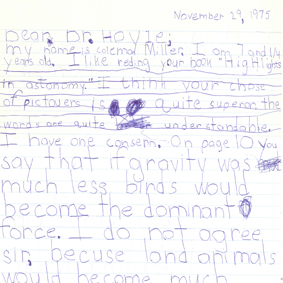 November 29, 1975
Dear Dr. Hoyle,
my name is colemol Miller. I am 7 and 1/4
years old. I like reding your book "HigHligHts
in astonomy." I think your chose
of pictauers is quite superon. the
words are quite understandable.
I have one consern. On page 10 you
say that if gravity was
much less birds would
become the dominant
force. I do not agree
sir, becuse land animals
would become much